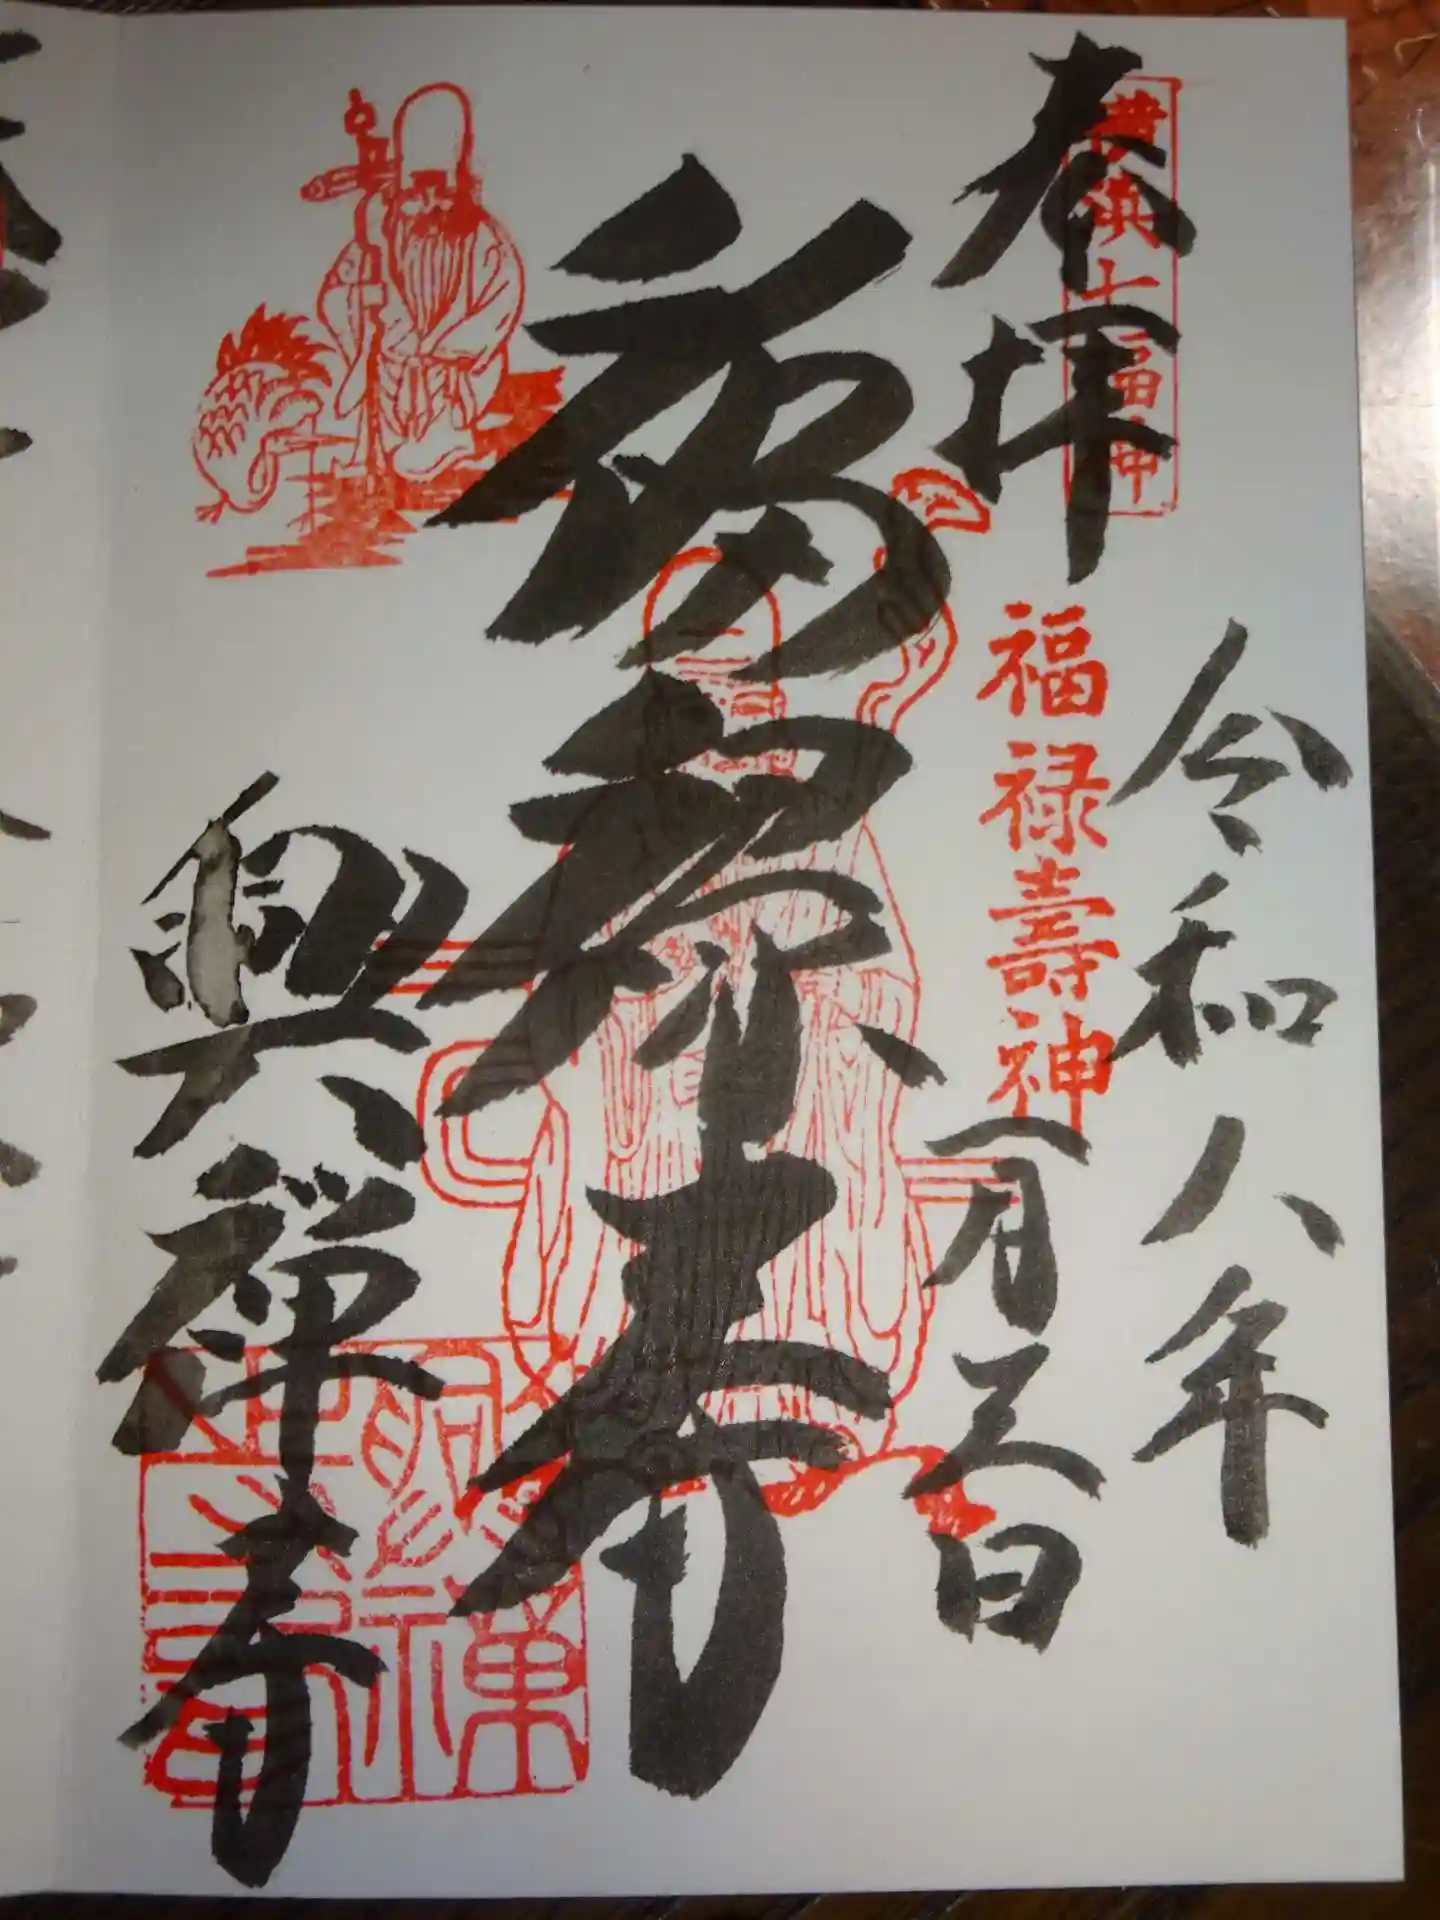 奉拝
横浜七福神
令和八年
一月三日
福禄壽神
福禄寿
興禅寺